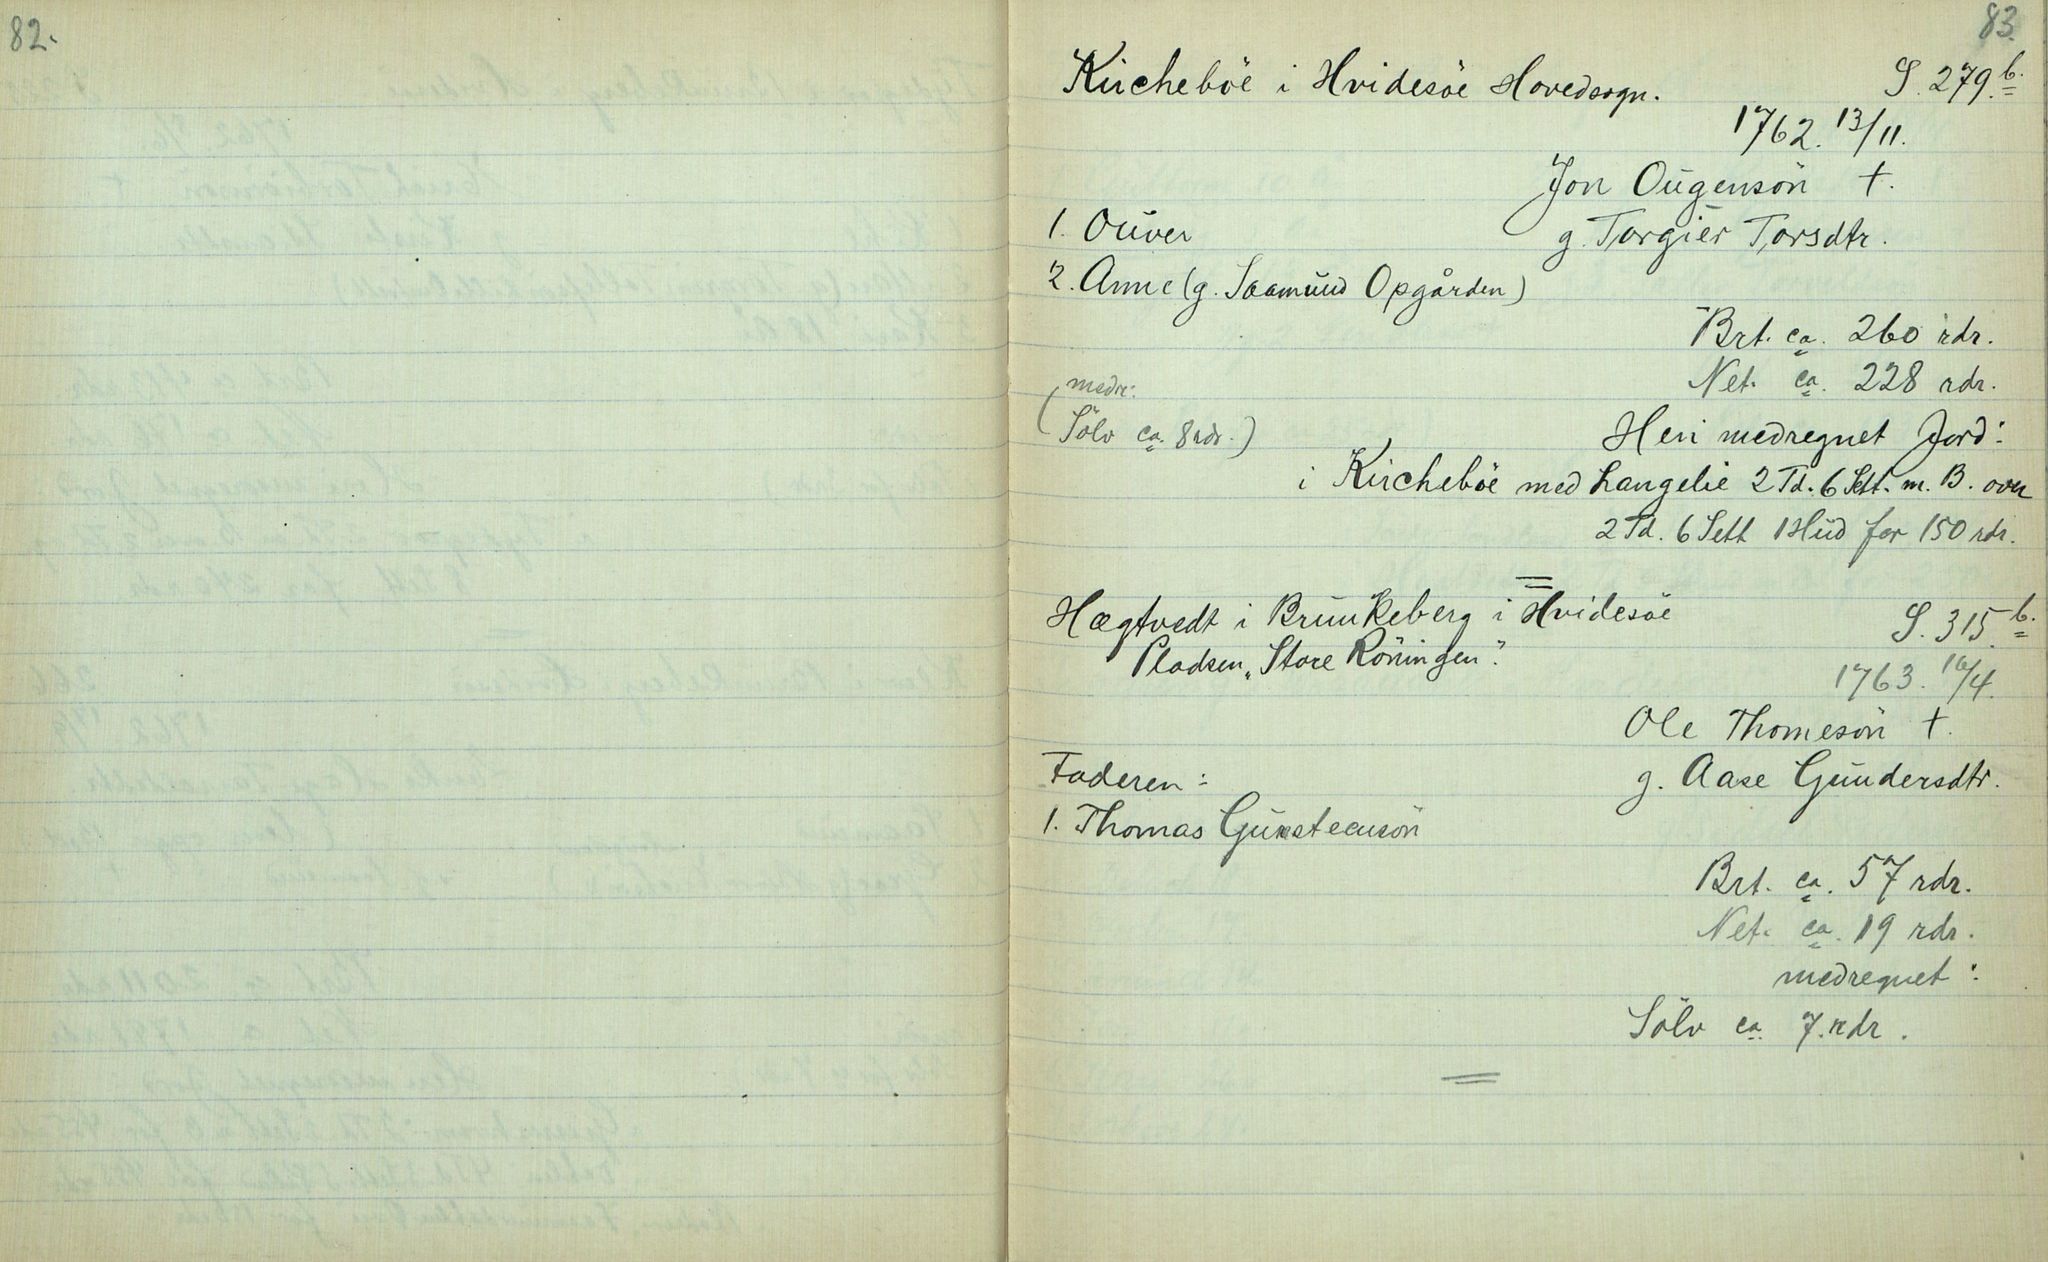 82.
83.
Kircheböe i Hvidesöe Hovedsogn. S. 279.b.
1762. 13/11.
Jon Ougensön †.
1. Ouver g. Torgier Torsdtr.
2. Anne (g. Saamund Opgården)
Brt. ca. 260 rdr.
Net. ca. 228 rdr.
(medr:
Sölv ca. 8 rdr.) Heri medregnet Jord:
i Kircheböe med Langelie 2 Td. 6 Sett. m. B. over
2 Td. 6 Sett 1 Hud for 150 rdr.
Hægtvedt i Brunkeberg i Hvidesöe S. 315.b.
Pladsen „Store Röningen”. 1763. 16/4.
Ole Thomesön †.
Faderen: g. Aase Gundersdtr.
1. Thomas Gunsteensön
Brt. ca. 57 rdr.
Net. ca. 19 rdr.
medregnet:
Sölv ca. 7. rdr.